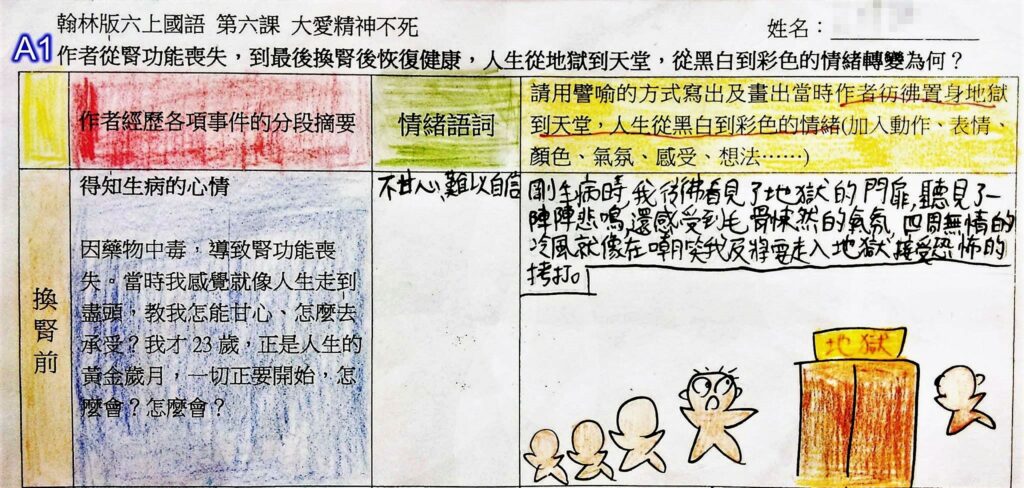 翰林版六上國語 第六課 大愛精神不死
姓名：
A1
作者從腎功能喪失，到最後換腎後恢復健康，人生從地獄到天堂，從黑白到彩色的情緒轉變為何？
作者經歷各項事件的分段摘要
情緒語詞
請用譬喻的方式寫出及畫出當時作者彷彿置身地獄
到天堂，人生從黑白到彩色的情緒(加入動作、表情、
顏色、氣氛、感受、想法……)
換腎前
得知生病的心情
因藥物中毒，導致腎功能喪
失。當時我感覺就像人生走到
盡頭，教我怎能甘心、怎麼去
承受？我才23歲，正是人生的
黃金歲月，一切正要開始，怎
麼會？怎麼會？
不甘心、難以自信
剛生病時，我彷彿看見了地獄的門扉，聽見了一
陣陣悲鳴，還感受到毛骨悚然的氣氛，四周無情的
冷風就像在嘲笑我及將要走入地獄接受恐怖的
拷打。
地獄